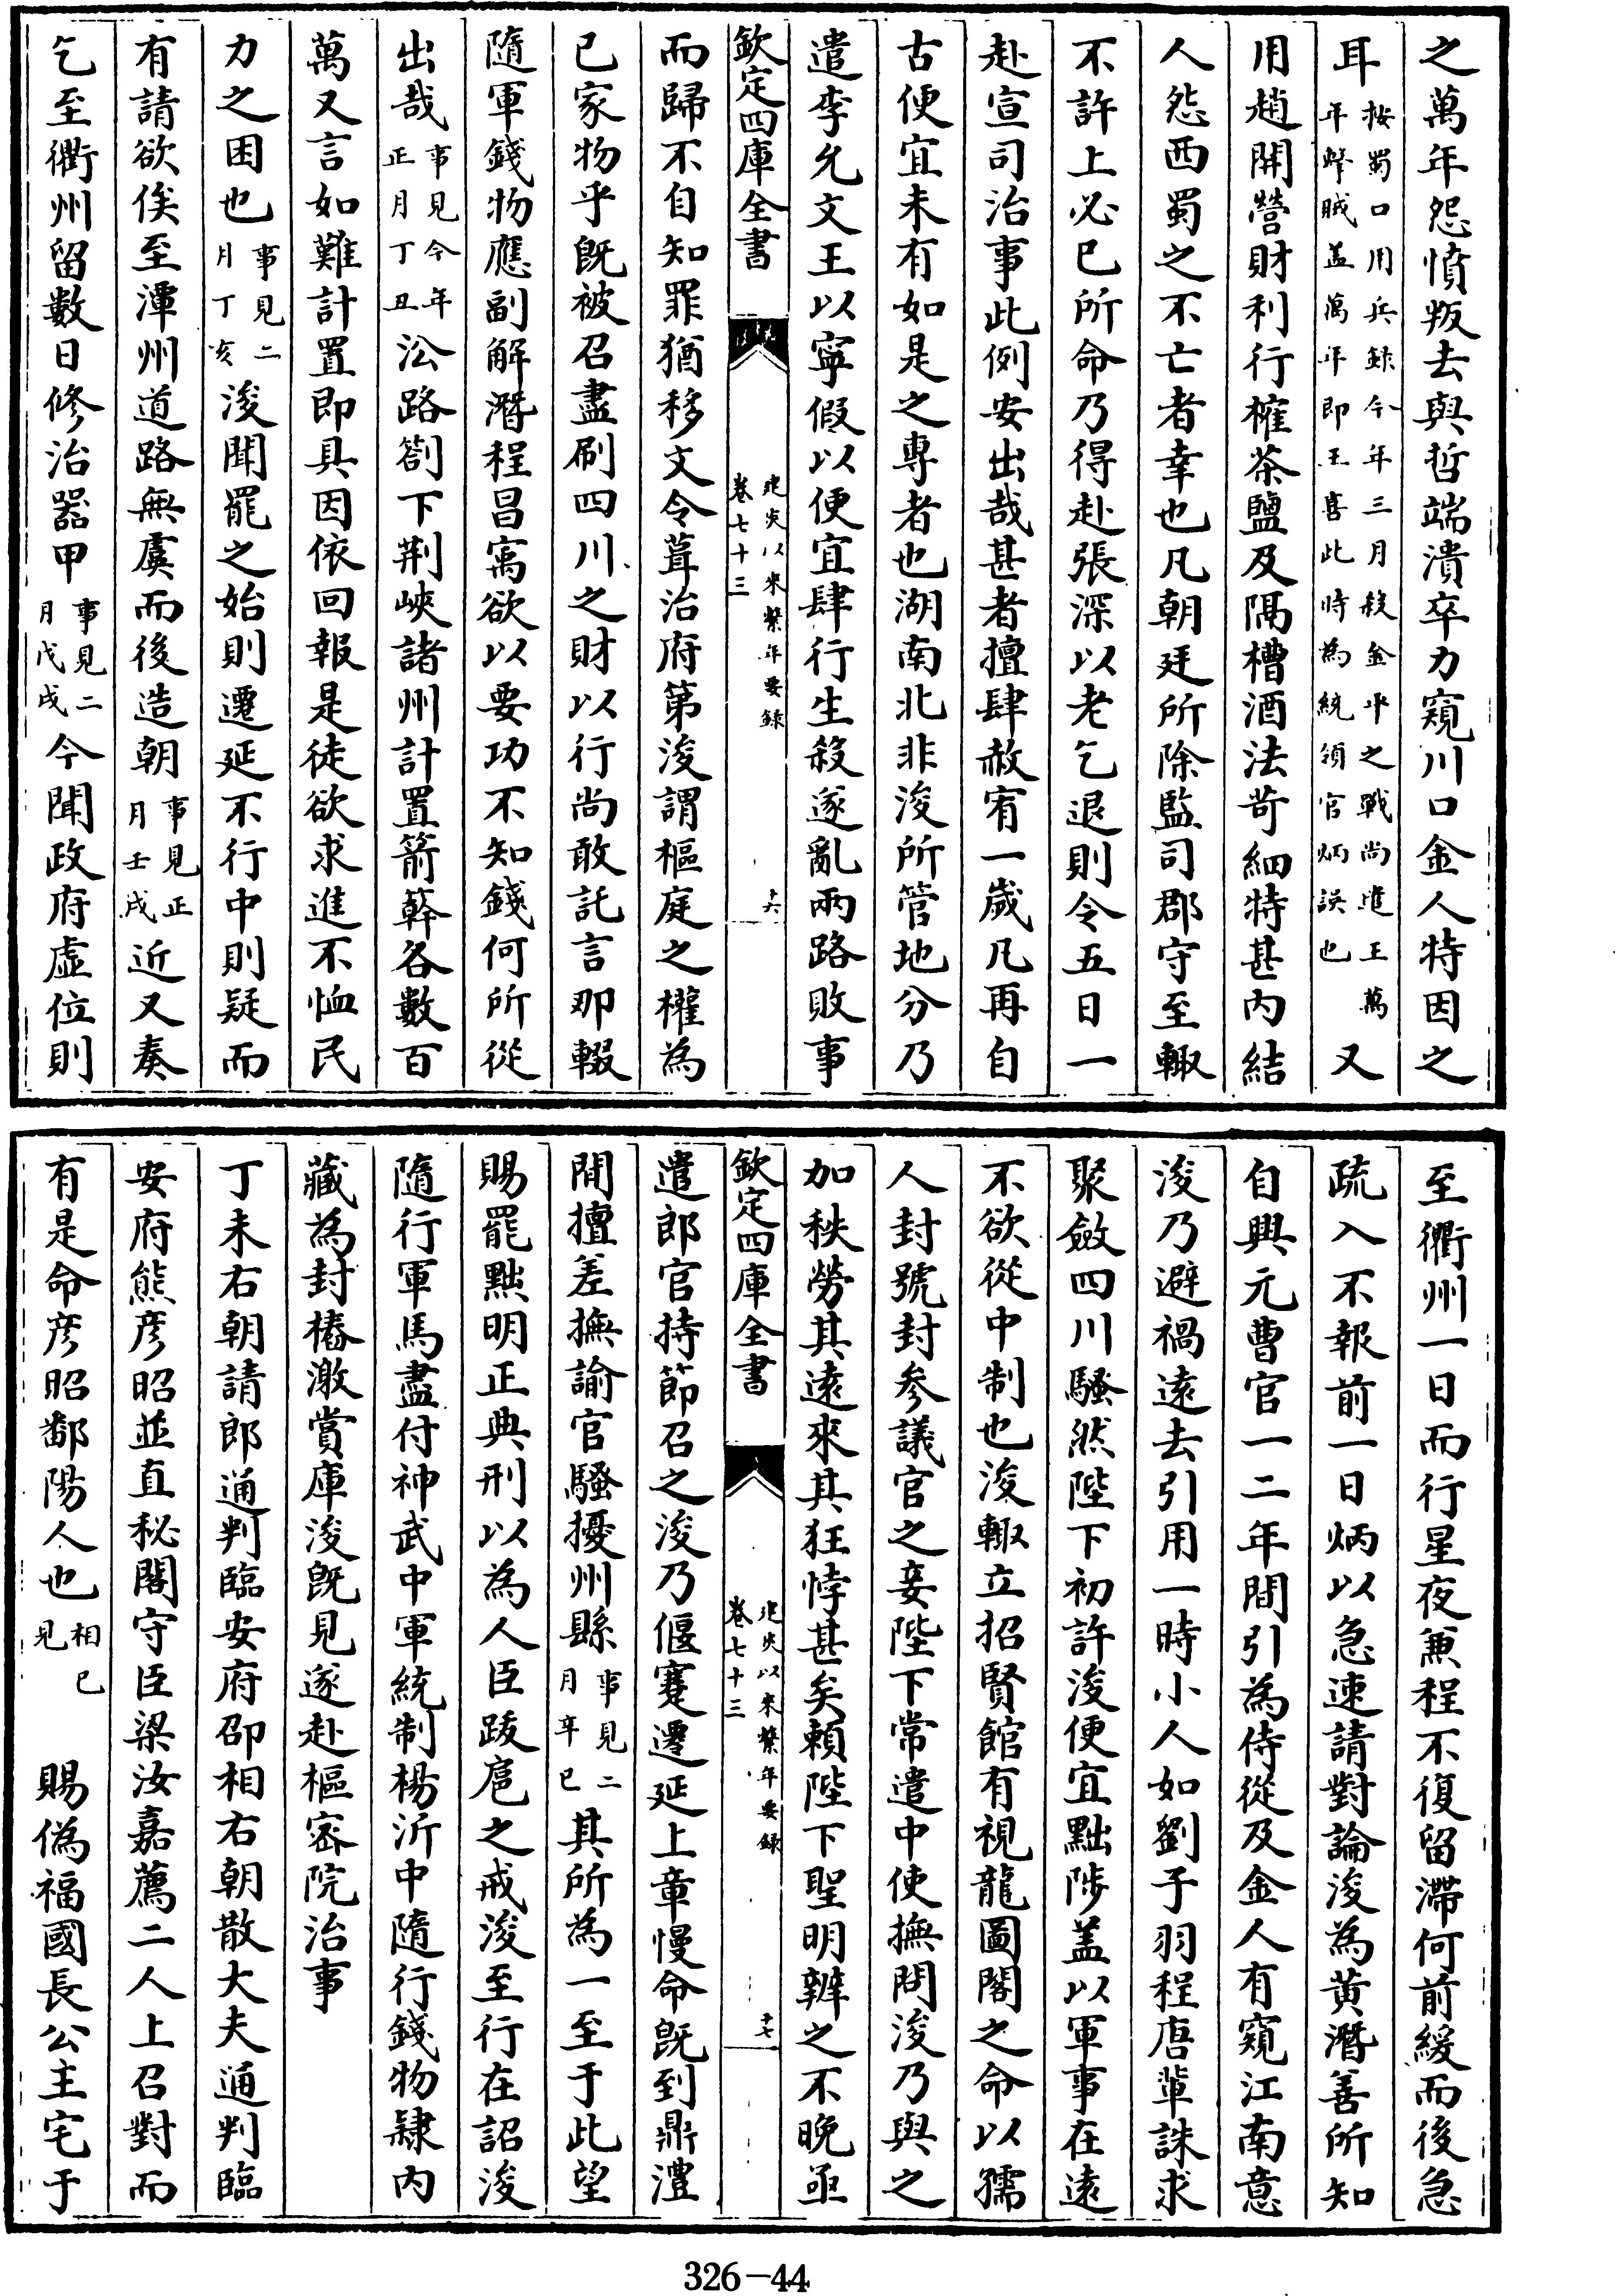 之萬年怨憤叛去與哲端潰卒力窺川口金人特因之
耳按蜀口用兵録今年三月殺金平之戰尚進王萬年蜂賊盖萬年即王喜此時為統領官炳誤也又
用趙開營財利行榷茶鹽及隔槽酒法苛細特甚内結
人怨西蜀之不亡者幸也凡朝廷所除監司郡守至輙
不許上必已所命乃得赴張深以老乞退則令五日一
赴宣司治事此例安出哉甚者擅肆赦宥一歲凡再自
古便宜未有如是之專者也湖南北非浚所管地分乃
遣李允文王以寧假以便宜肆行生殺遂亂兩路敗事
欽定四庫全書 建炎以來繫年要録卷七十三 十六
而歸不自知罪猶移文令葺治府第浚謂樞庭之權為
已家物乎既被召盡刷四川之財以行尚敢託言那輟
隨軍錢物應副解潛程昌寓欲以要功不知錢何所從
出哉事見今年正月丁丑㳂路劄下荆峽諸州計置箭簳各數百
萬又言如難計置即具因依回報是徒欲求進不恤民
力之困也事見二月丁亥浚聞罷之始則遷延不行中則疑而
有請欲俟至潭州道路無虞而後造朝事見正月壬戌近又奏
乞至衢州留數日修治器甲事見二月戊戌今聞政府虚位則
至衢州一日而行星夜兼程不復留滯何前緩而後急
疏入不報前一日炳以急速請對論浚為黄潛善所知
自興元曹官一二年間引為侍從及金人有窺江南意
浚乃避禍逺去引用一時小人如劉子羽程唐軰誅求
聚斂四川騷然陛下初許浚便宜黜陟盖以軍事在逺
不欲從中制也浚輙立招賢館有視龍圖閣之命以孺
人封號封參議官之妾陛下常遣中使撫問浚乃與之
加秩勞其逺來其狂悖甚矣頼陛下聖明辨之不晚亟
欽定四庫全書 建炎以來繫年要録卷七十三 十七
遣郎官持節召之浚乃偃蹇遷延上章慢命既到鼎澧
間擅差撫諭官騷擾州縣事見二月辛巳其所為一至于此望
賜罷黜明正典刑以為人臣跋扈之戒浚至行在詔浚
隨行軍馬盡付神武中軍統制楊沂中隨行錢物隸内
藏為封樁激賞庫浚既見遂赴樞宻院治事
丁未右朝請郎通判臨安府邵相右朝散大夫通判臨
安府熊彦昭並直秘閣守臣梁汝嘉薦二人上召對而
有是命彦昭鄱陽人也相已見 賜偽福國長公主宅于
326-44